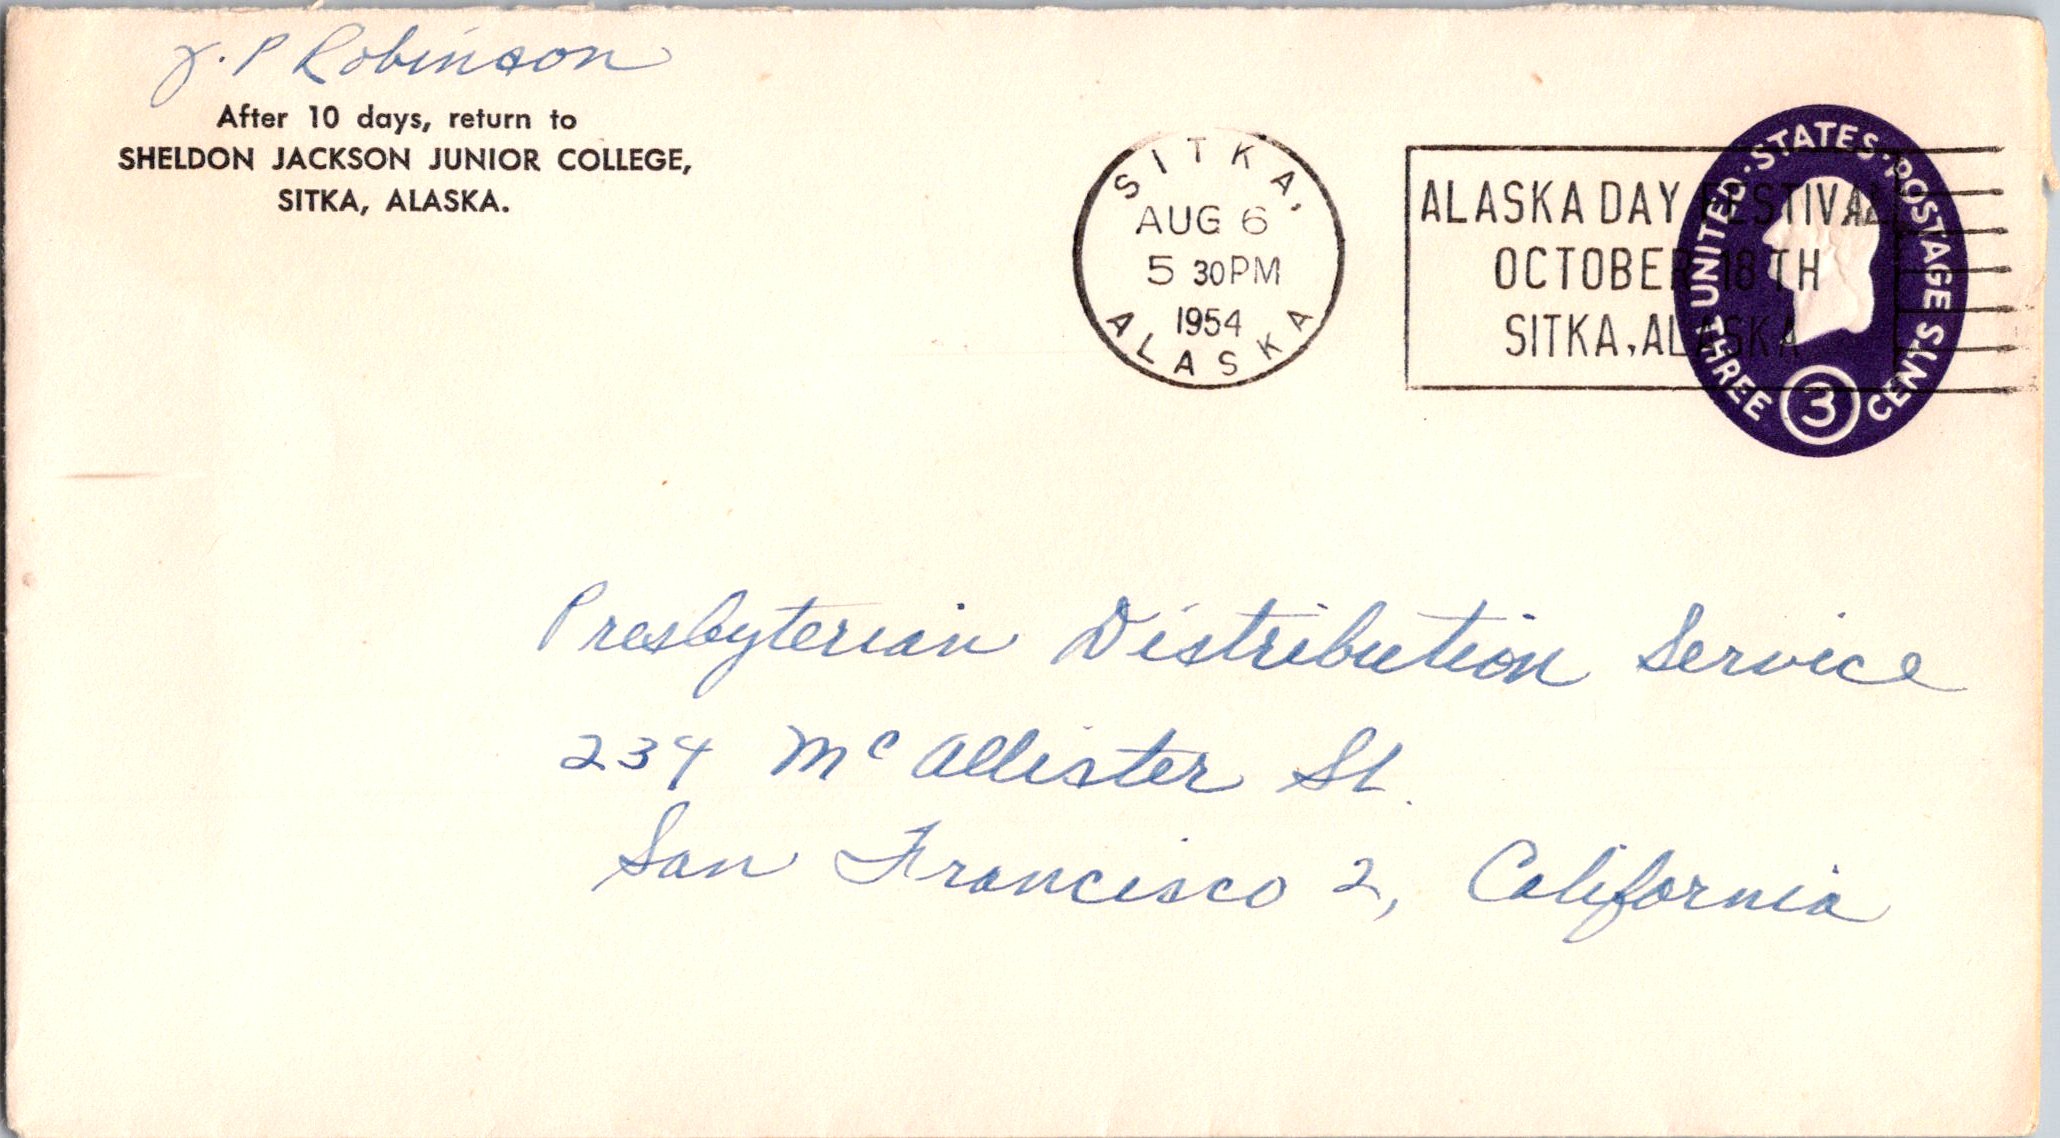 J. P Robinson
After 10 days, return to
SHELDON JACKSON JUNIOR COLLEGE,
SITKA, ALASKA.
SITKA,
AUG 6
5 30PM
1954
ALASKA
ALASKA DAY FESTIVAL
OCTOBER 18TH
SITKA, ALASKA
UNITED·STATES·POSTAGE
THREE 3 CENTS
Presbyterian Distribution Service
234 McAllister St.
San Francisco 2, California